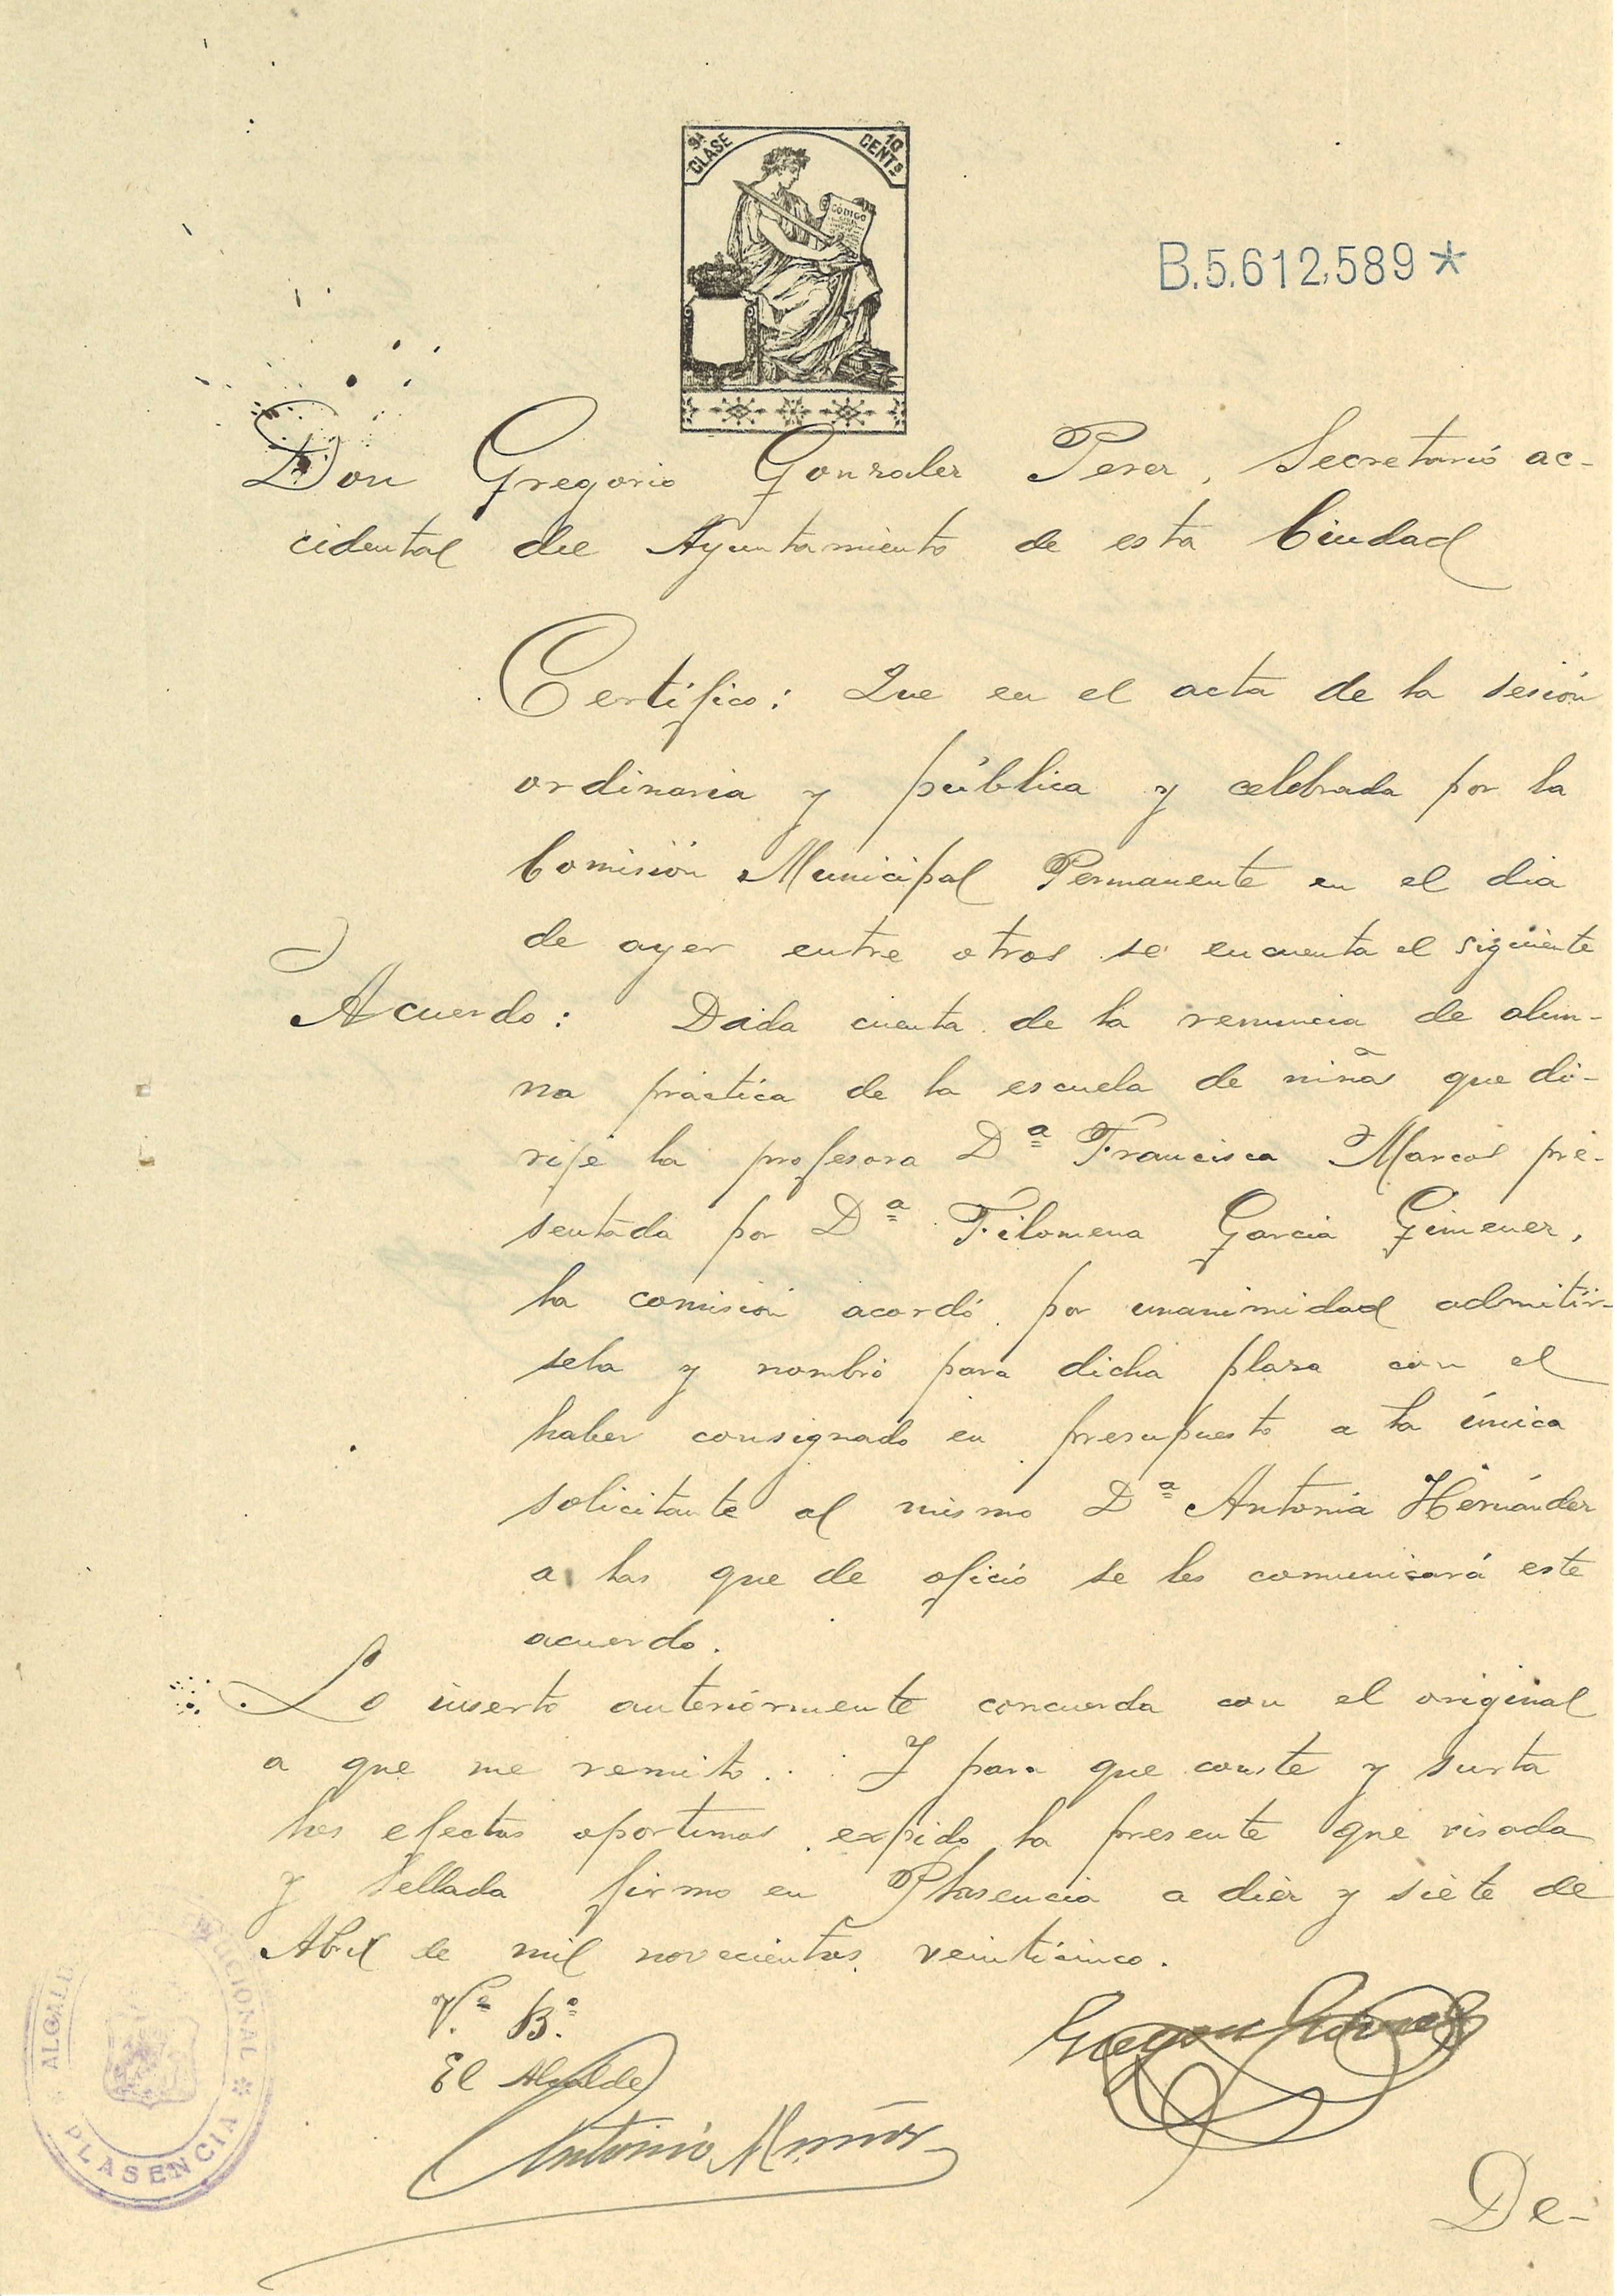 9ª CLASE
10 CENTS
CÓDIGO
B.5.612,589*
Don Gregorio Gonzalez Perez, Secretario ac-
cidental del Ayuntamiento de esta Ciudad
Certifico: Que en el acta de la sesión
ordinaria y pública y celebrada por la
Comisión Municipal Permanente en el dia
de ayer entre otros se encuenta el siguiente
Acuerdo: Dada cuenta de la renuncia de alum-
na práctica de la escuela de niñas que di-
rije la profesora Dª Francisca Marcos pre-
sentada por Dª Filomena Garcia Gimenez,
la comisión acordó por unanimidad admitir-
sela y nombró para dicha plaza con el
haber consignado en presupuesto a la única
solicitante al mismo Dª Antonia Hernández
a las que de oficio se les comunicará este
acuerdo.
Lo inserto anteriormente concuerda con el original
a que me remito. Y para que conste y surta
los efectos oportunos expido la presente que visada
y sellada firmo en Plasencia a diez y siete de
Abril de mil novecientos veinticinco.
Vº Bº
El Alcalde
Antonio Muñoz
ALCALD
UCIONAL
PLASENCIA
De-